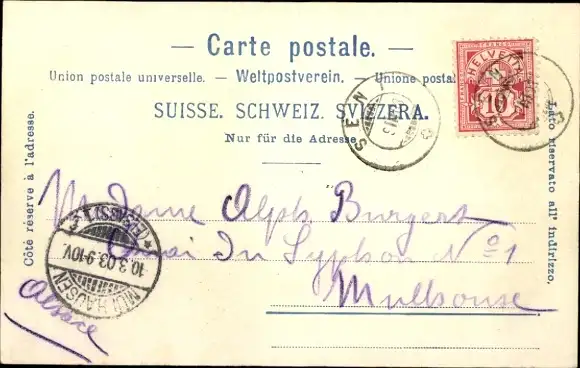 — Carte postale. —
Union postale universelle. — Weltpostverein. — Unione posta
SUISSE. SCHWEIZ. SVIZZERA.
Nur für die Adresse
Côté réservé à l'adresse.
Lato riservato all' indirizzo.
HELVETIA
10
SEN
MÜLHAUSEN
(ELSASS) 1 c
10.3.03.9-10V.
Madame Alph. Burgert
Quai Du Syphon No 1
Mulhouse
Alsace